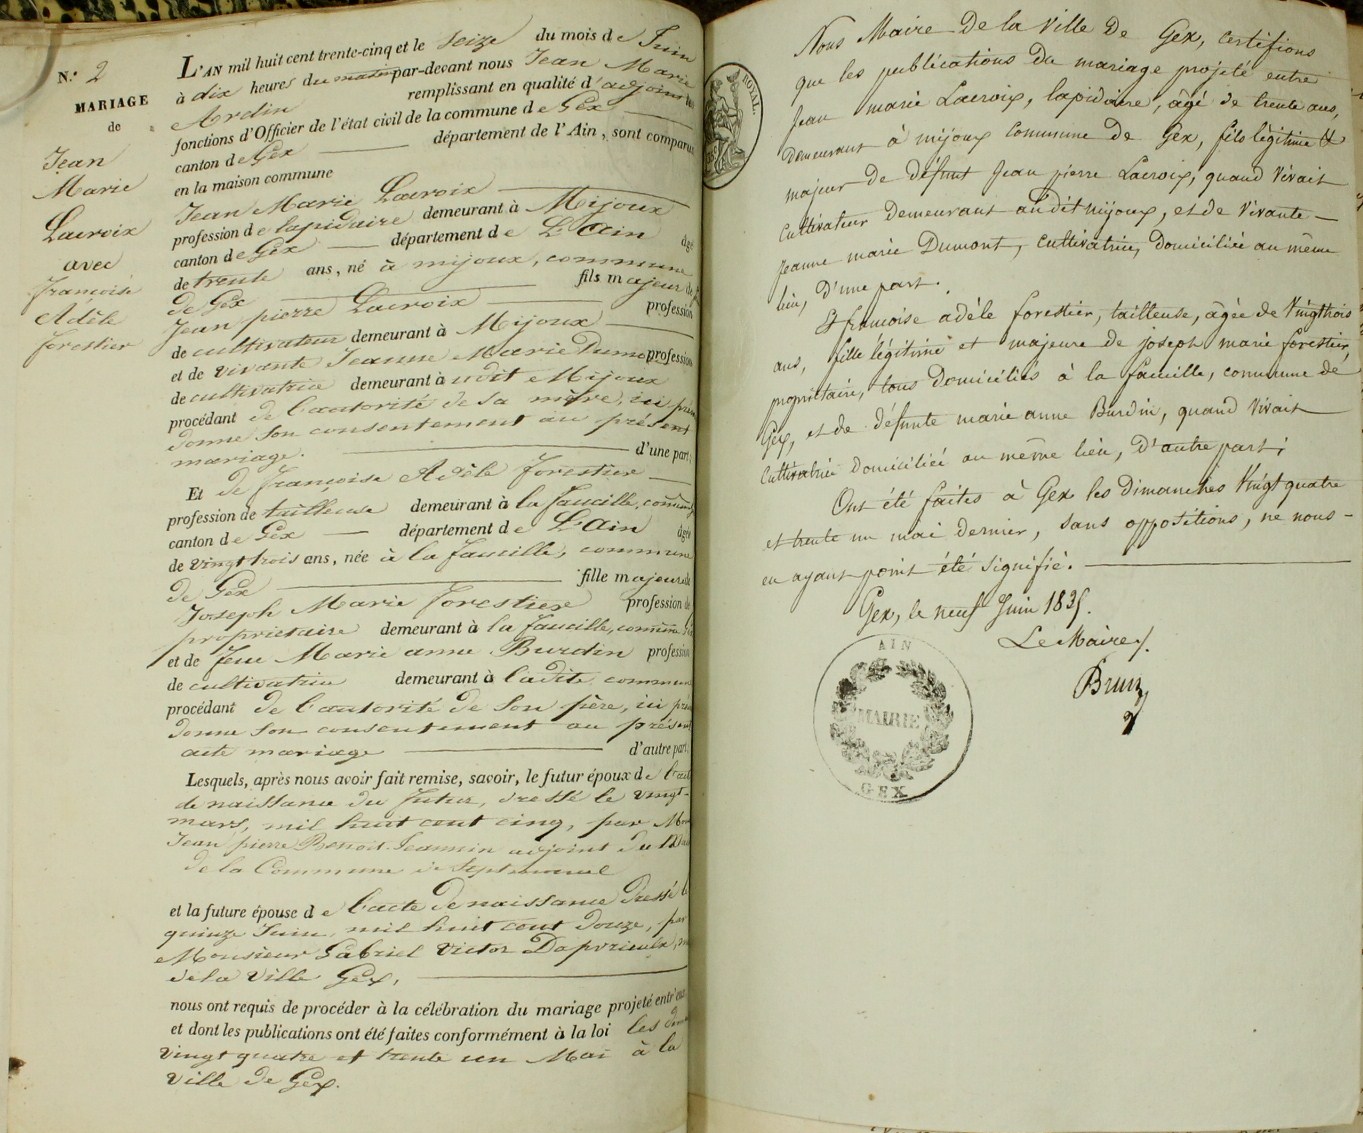 N.º 2
MARIAGE
de
Jean
Marie
Lacroix
avec
françoise
Adèle
forestier
L'AN mil huit cent trente-cinq et le seize du mois de Juin
à dix heures du matin par-devant nous Jean Marie
Ardin remplissant en qualité d'adjoint les
fonctions d'Officier de l'état civil de la commune de Gex
canton de Gex département de l'Ain, sont comparus
en la maison commune
Jean Marie Lacroix
profession de lapidaire demeurant à Mijoux
canton de Gex département de L'Ain âgé
de trente ans, né à mijoux, commune
de Gex fils majeur de
Jean pierre Lacroix profession
de cultivateur demeurant à Mijoux
et de vivante Jeanne Marie Dumont profession
de cultivatrice demeurant à udit Mijoux
procédant de l'autorité de sa mère, ici
donne son consentement au présent
mariage. d'une part;
Et de françoise Adèle forestier
profession de tailleuse demeurant à la faucille, commune
canton de Gex département de L'Ain âgée
de vingt trois ans, née à la faucille, commune
de Gex fille majeure de
Joseph Marie forestier profession de
propriétaire demeurant à la faucille, commune
et de feue Marie anne Burdin profession
de cultivatrice demeurant à ladite commune
procédant de l'autorité de son père, ici
donne son consentement au présent
acte mariage d'autre part.
Lesquels, après nous avoir fait remise, savoir, le futur époux de l'acte
de naissance du futur, dressé le vingt-
mars, mil huit cent cinq, par
Jean pierre Benoit Jeannin adjoint du
de la Commune de Septmoncel
et la future épouse de l'acte de naissance dressé le
quinze Juin, mil huit cent douze, par
Monsieur Gabriel Victor
de la Ville Gex,
nous ont requis de procéder à la célébration du mariage projeté entr'eux
et dont les publications ont été faites conformément à la loi les
vingt quatre et trente un Mai à la
ville de Gex.
ROYAL.
Nous Maire de la Ville de Gex, certifions
que les publications du mariage projeté entre
Jean marie Lacroix, lapidaire, âgé de trente ans,
demeurant à mijoux commune de Gex, fils légitime &
majeur de défunt Jean pierre Lacroix, quand vivait
cultivateur demeurant audit mijoux, et de vivante
Jeanne marie Dumont, cultivatrice, domiciliée au même
lieu, d'une part.
Et francoise adèle forestier, tailleuse, âgée de Vingttrois
ans, fille légitime et majeure de joseph marie forestier,
propriétaire, tous domiciliés à la faucille, commune de
Gex, et de défunte marie anne Burdin, quand vivait
Cultivatrice domiciliée au même lieu, d'autre part;
Ont été faites à Gex les dimanches Vingt quatre
et trente un mai dernier, sans oppositions, ne nous
en ayant point été signifié.
Gex, le neuf Juin 1835.
Le Maire
AIN
MAIRIE
GEX